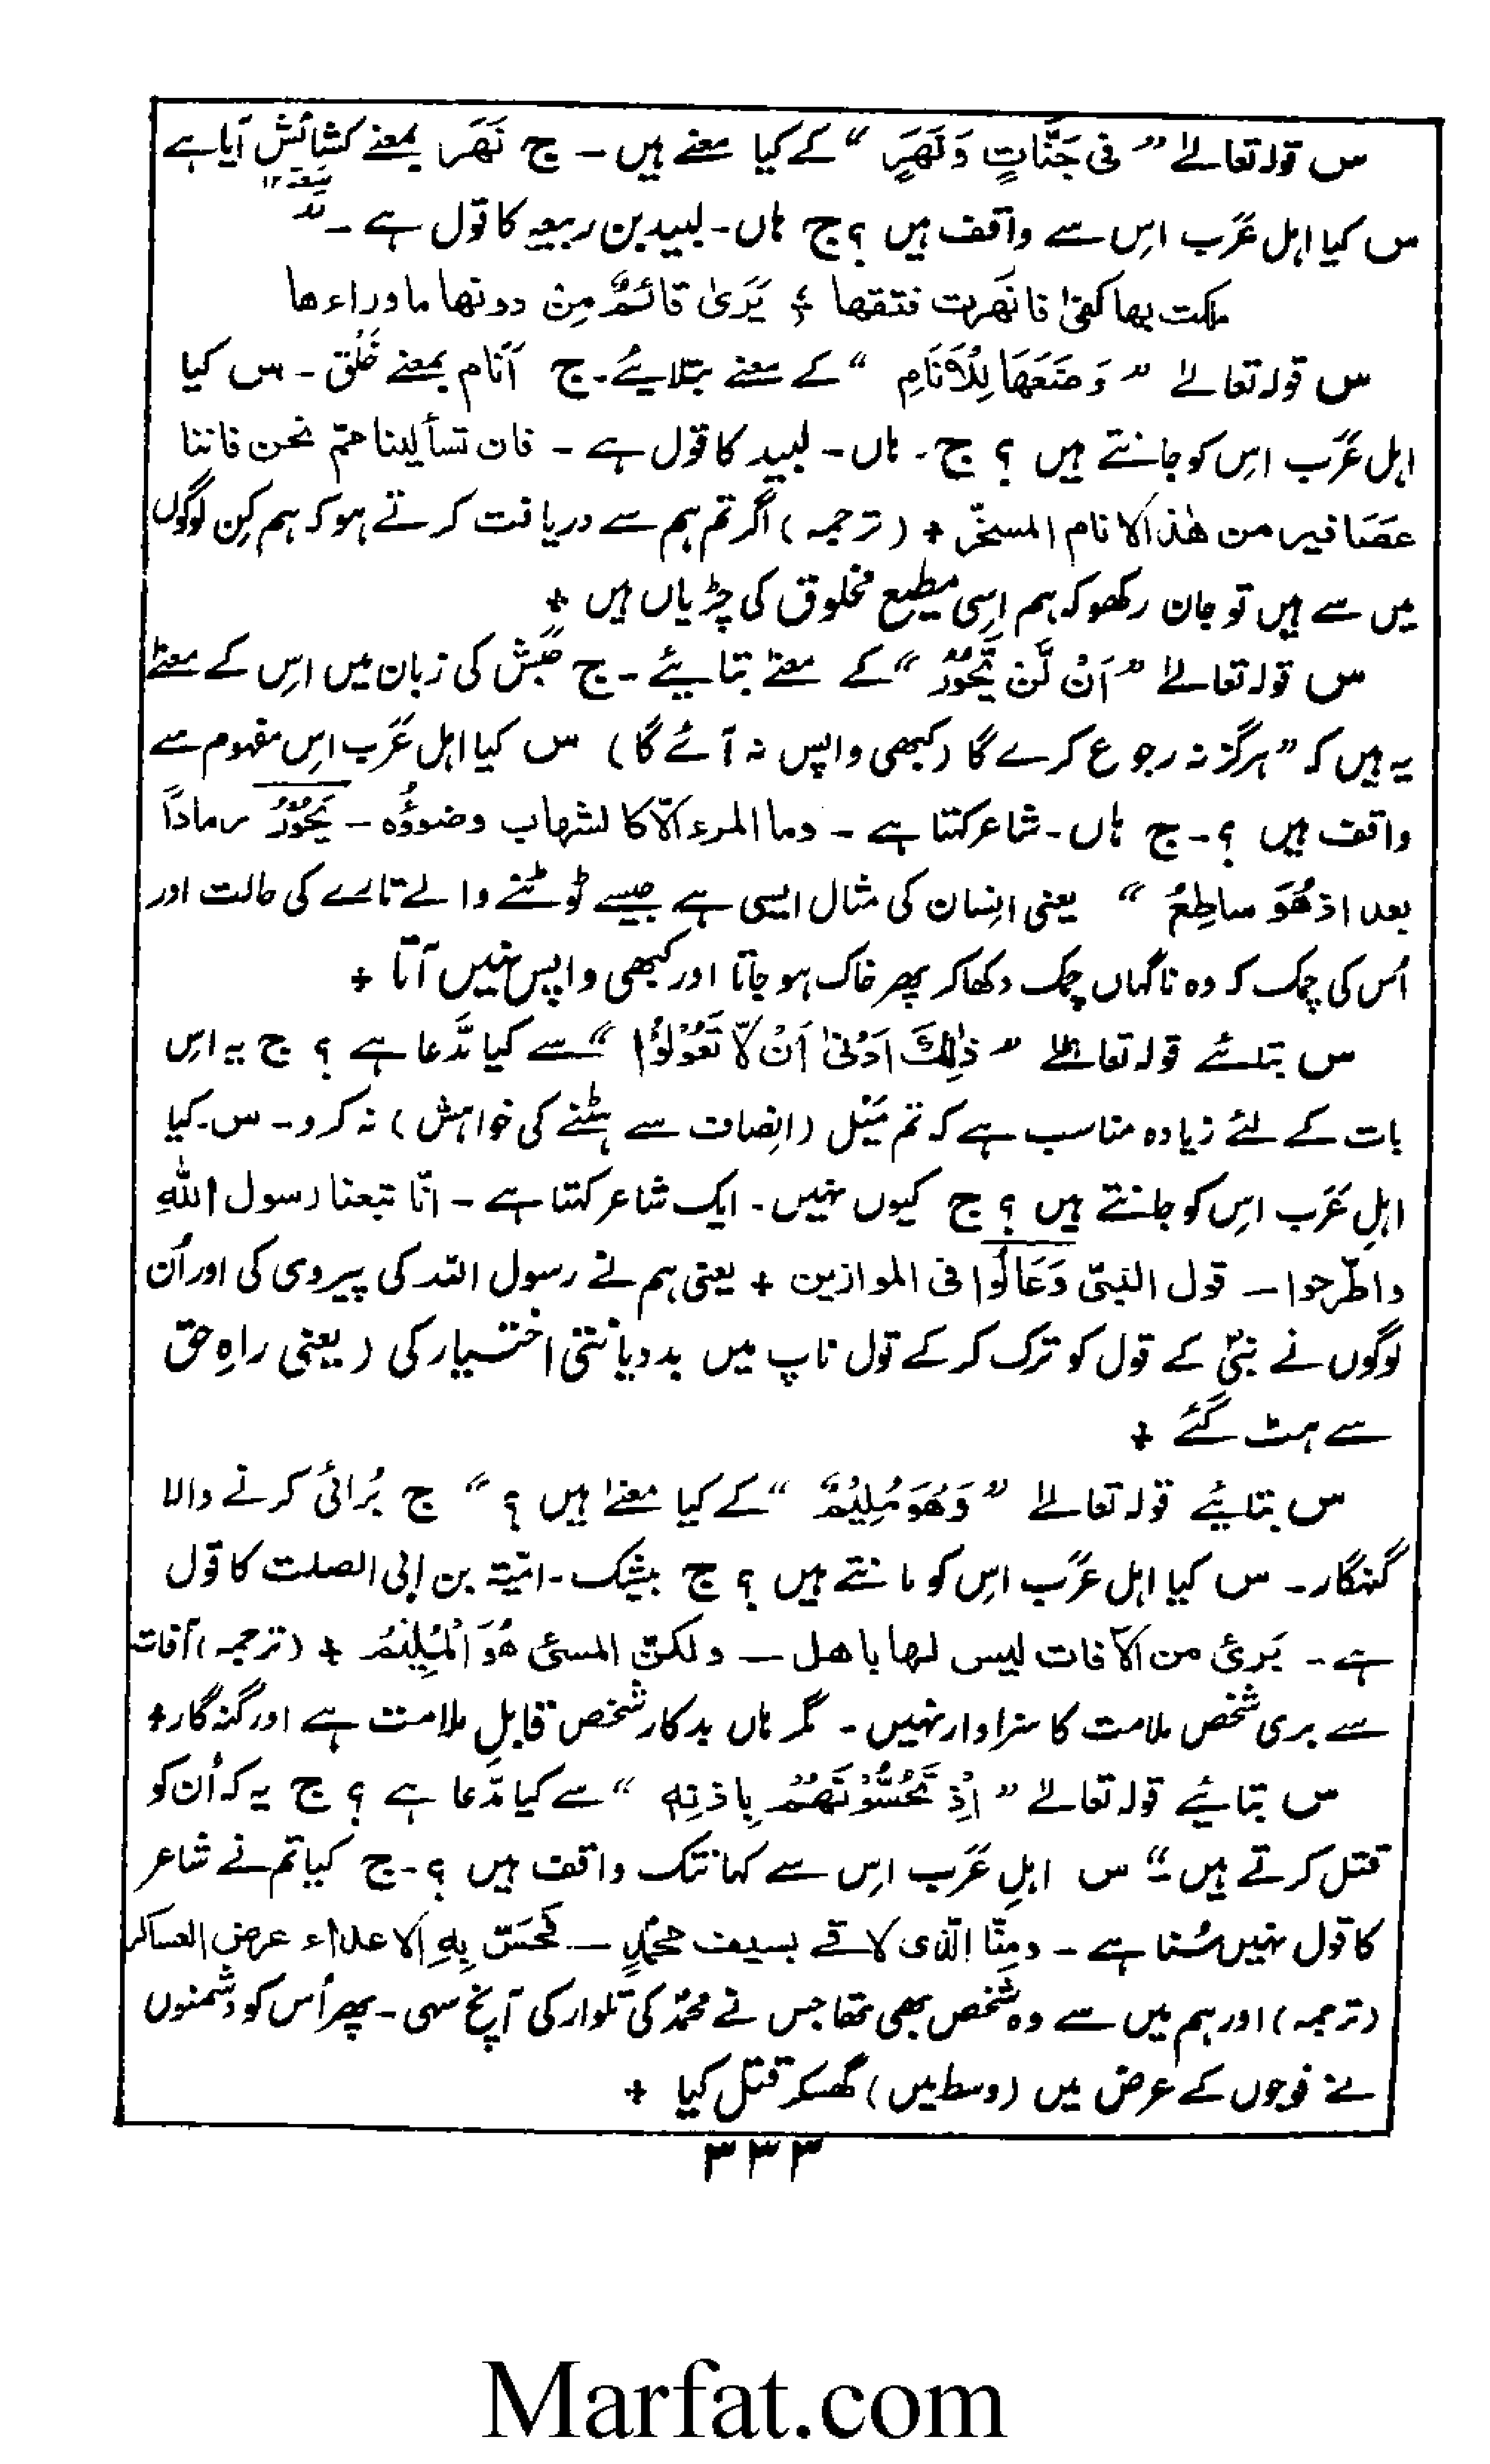 س قولہ تعالےٰ ”فِی جَنَّاتٍ وَنَهَرٍ“ کے کیا معنے ہیں۔ ج نَهَر بمعنے کشائش آیا ہے
س کیا اہل عَرَب اِس سے واقف ہیں ؟ ج ہاں۔ لبید بن ربیعہ کا قول ہے۔
ملکت بها کفی فانهرت فتقها ؛ یَرَیٰ قائمٌ مِنْ دونها ماوراءها
س قولہ تعالےٰ ”وَضَعَهَا لِلْاَنَامِ“ کے معنے بتلایئے۔ ج اَنَام بمعنے خَلْق۔ س کیا
اہل عَرَب اِس کو جانتے ہیں ؟ ج۔ ہاں۔ لبید کا قول ہے۔ فان تسألینا مم نحن فاننا
عصَافیر من هٰذا الانام المسخّر + (ترجمہ) اگر تم ہم سے دریافت کرتے ہو کہ ہم کِن لوگوں
میں سے ہیں تو جان رکھو کہ ہم اِسی مطیع مخلوق کی چڑیاں ہیں +
س قولہ تعالےٰ ”اَنْ لَّنْ یَّحُوْرَ“ کے معنے بتایئے۔ ج حَبَش کی زبان میں اِس کے معنے
یہ ہیں کہ ”ہرگز نہ رجوع کرے گا (کبھی واپس نہ آئے گا) س کیا اہل عَرَب اِس مفہوم سے
واقف ہیں ؟۔ ج ہاں۔ شاعر کہتا ہے۔ وما المرء اِلّا کالشهاب وضوؤُہ۔ یَحُوْرُ رماداً
بعد اذ هُوَ ساطِعُ“ یعنی انسان کی مثال ایسی ہے جیسے ٹوٹنے والے تارے کی حالت اور
اُس کی چمک کہ وہ ناگہاں چمک دکھا کر پھر خاک ہو جاتا اور کبھی واپس نہیں آتا +
س بتلئے قولہ تعالےٰ ”ذٰلِكَ اَدْنیٰ اَنْ لَّا تَعُوْلُوْا“ سے کیا مدّعا ہے ؟ ج یہ اِس
بات کے لئے زیادہ مناسب ہے کہ تم مَیْل (انصاف سے ہٹنے کی خواہش) نہ کرو۔ س۔ کیا
اہلِ عَرَب اِس کو جانتے ہیں ؟ ج کیوں نہیں۔ ایک شاعر کہتا ہے۔ انّا تبعنا رسول اللهِ
واطّرحوا۔ قول النبیّ وَعَالُوا فی الموازین + یعنی ہم نے رسول اللہ کی پیروی کی اور اُن
لوگوں نے نبیؐ کے قول کو ترک کر کے تول ناپ میں بددیانتی اختیار کی (یعنی راہِ حق
سے ہٹ گئے +
س بتایئے قولہ تعالےٰ ”وَهُوَ مُلِیْمٌ“ کے کیا معنےٰ ہیں ؟“ ج بُرائی کرنے والا
گنہگار۔ س کیا اہل عَرَب اِس کو مانتے ہیں ؟ ج بیشک۔ امیّتہ بن اِبی الصلت کا قول
ہے۔ بَرِئ من الآفات لیس لها باهل۔ ولکنّ المسئ هُوَ الْمُلِیْمُ + (ترجمہ) آفات
سے بری شخص ملامت کا سزاوار نہیں۔ مگر ہاں بدکار شخص قابلِ ملامت ہے اور گنہ گار +
س بتایئے قولہ تعالےٰ ”اِذْ تَحُسُّوْنَهُمْ بِاِذنِهٖ“ سے کیا مدّعا ہے ؟ ج یہ کہ اُن کو
قتل کرتے ہیں“۔ س اہلِ عَرَب اِس سے کہانتک واقف ہیں ؟۔ ج کیا تم نے شاعر
کا قول نہیں سُنا ہے۔ ومِنّا الذی لاقے بسیف محمّدٍ۔ فَحَسَّ بِهِ الاعداء عرض العساکر
(ترجمہ) اور ہم میں سے وہ شخص بھی تھا جس نے محمّد کی تلوار کی آنچ سہی۔ پھر اُس کو دشمنوں
نے فوجوں کے عرض میں (وسط میں) گھسکر قتل کیا +
۳۳۳
Marfat.com